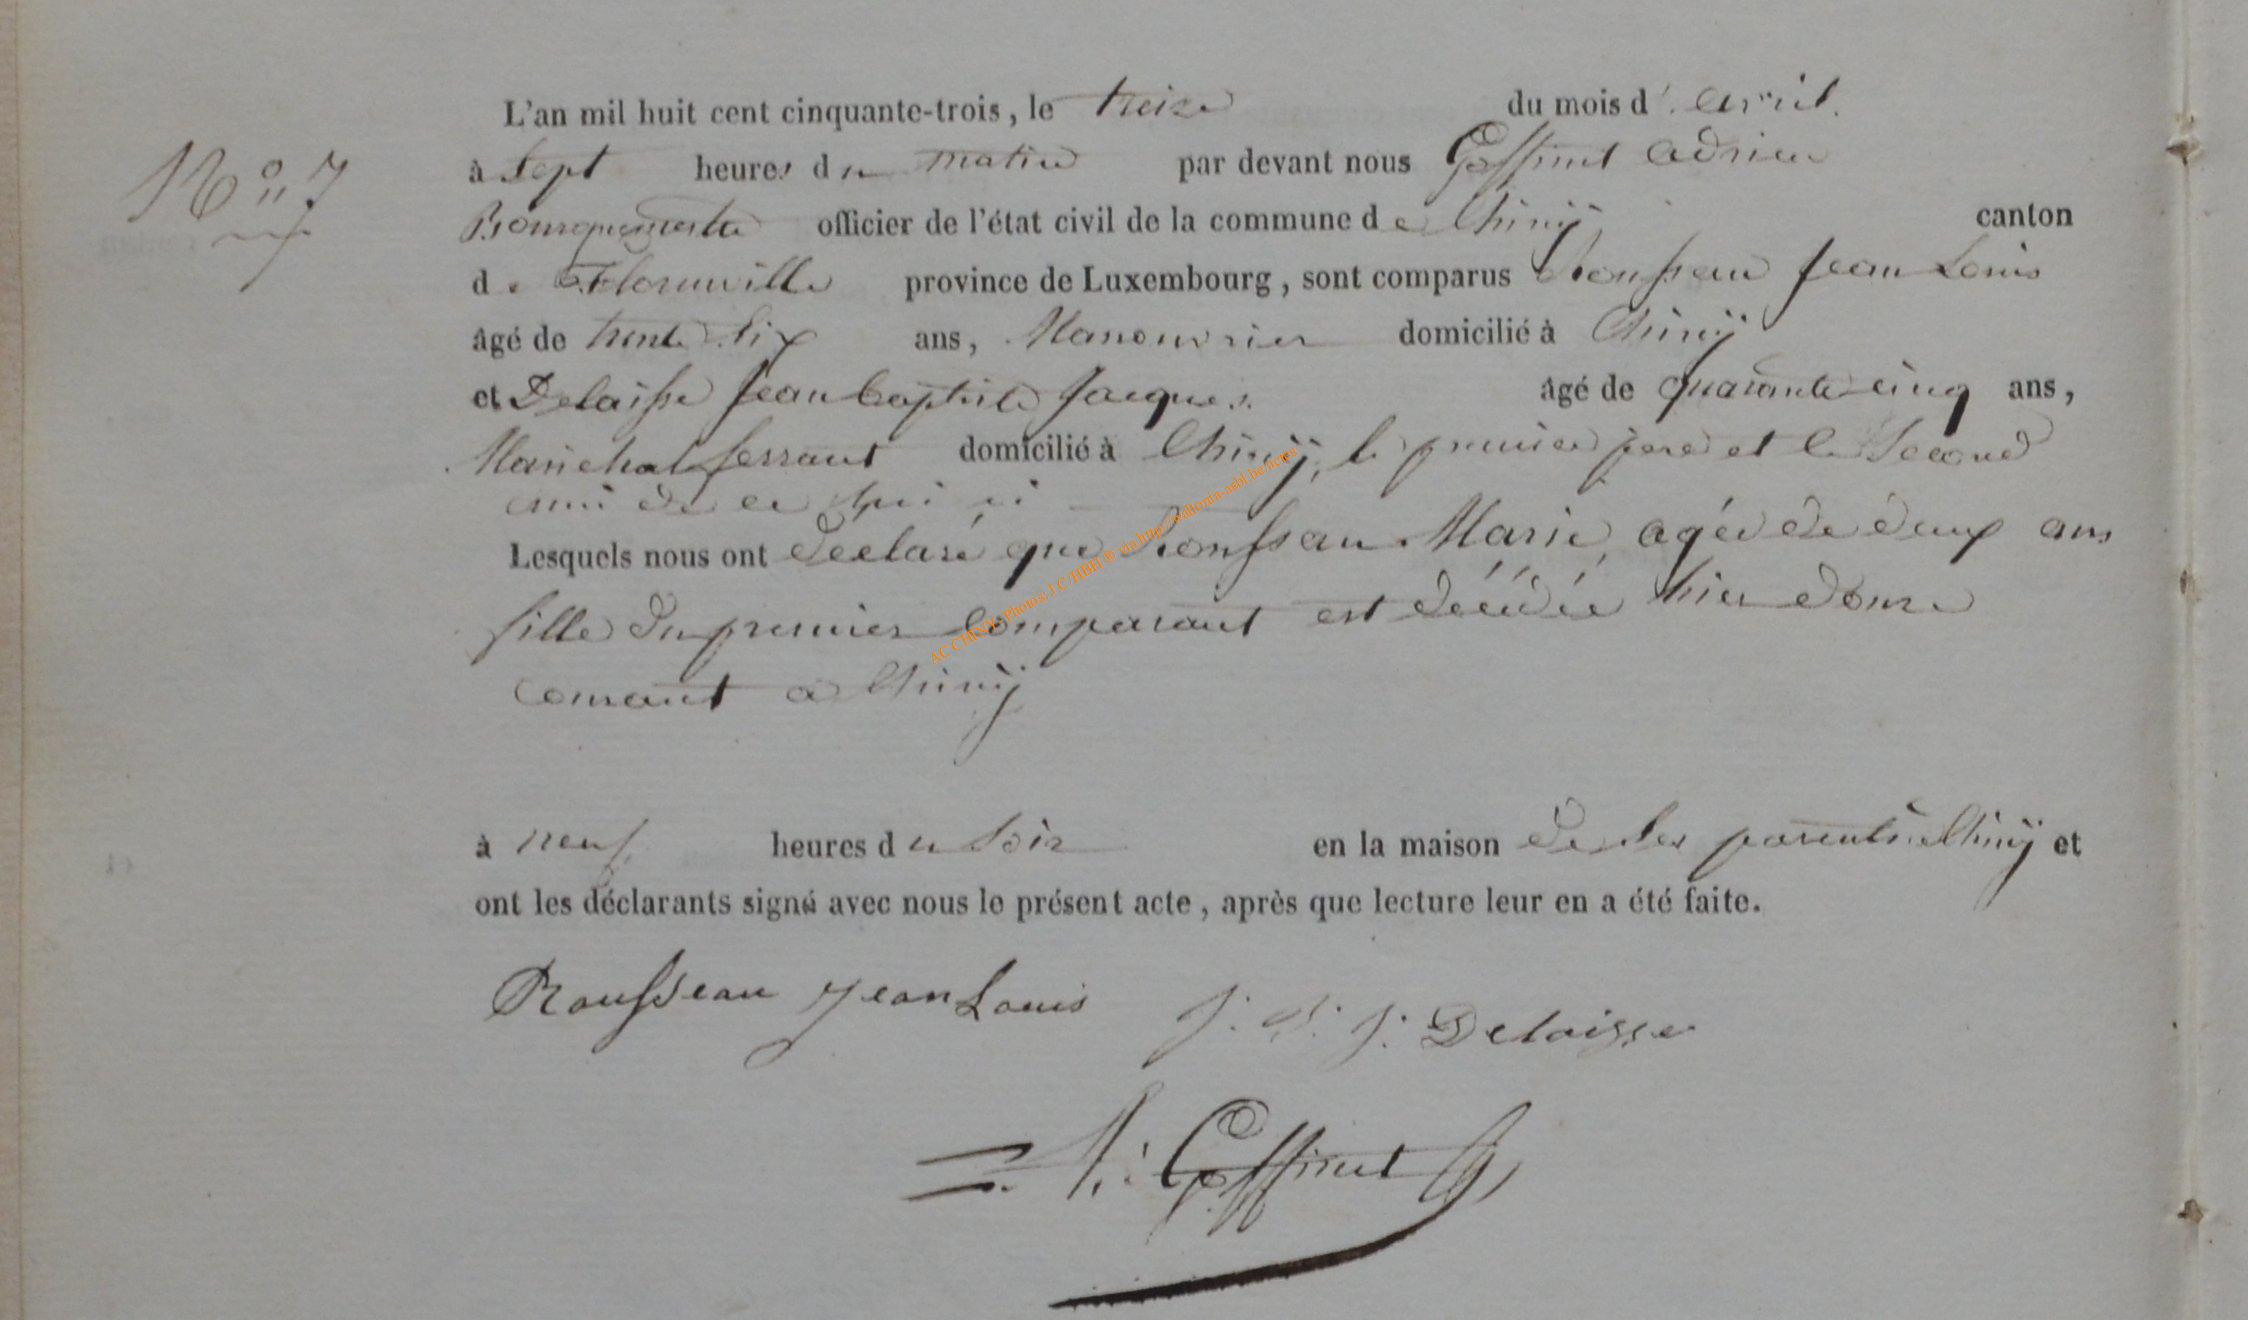 L'an mil huit cent cinquante-trois, le treize du mois d'avril.
N° 7
à sept heures du matin par devant nous Goffinet Adrien
Bourguemestre officier de l'état civil de la commune de Chiny canton
de Florenville province de Luxembourg, sont comparus Rousseau Jean Louis
âgé de trente six ans, Manouvrier domicilié à Chiny
et Delaisse Jean baptiste Jacques. âgé de quarante cinq ans,
Maréchal ferrant domicilié à Chiny, le premier père et le second
ami de
Lesquels nous ont déclaré que Rousseau Marie, agée de deux ans
fille du premier Comparant est décédée hier douze
Courant a Chiny
à neuf heures du soir en la maison de ses parents à Chiny et
ont les déclarants signé avec nous le présent acte, après que lecture leur en a été faite.
Rousseau Jean Louis J. B. J. Delaisse
A. Goffinet
AC CHINY Photos J.C/HBH ® via http://wallonia-asbl.be/actes